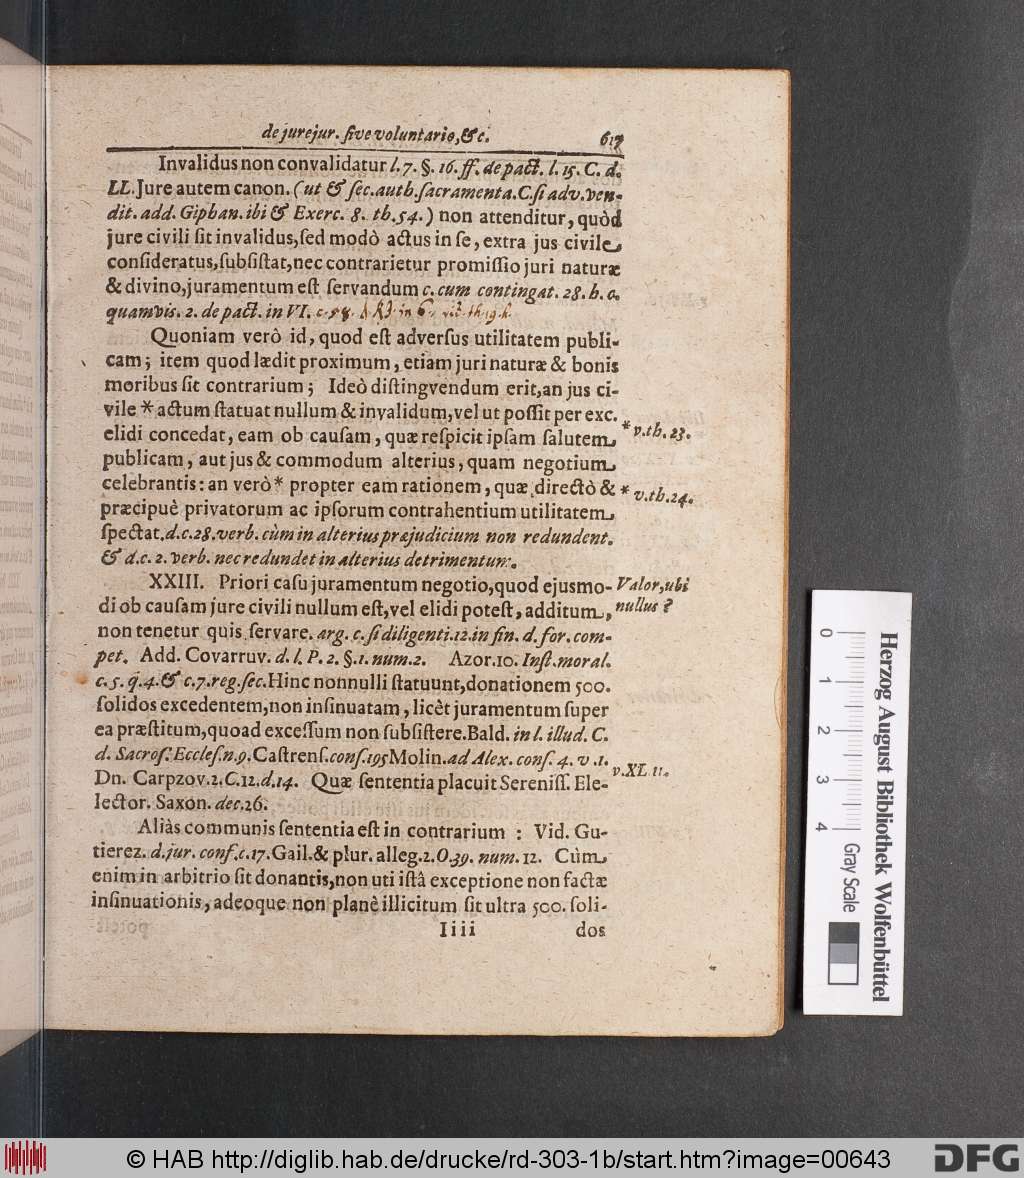 de jurejur. sive voluntario, &c. 617
Invalidus non convalidatur l. 7. §. 16. ff. de pact. l. 15. C. d.
LL. Jure autem canon. (ut & sec. auth. sacramenta. C. si adv. ven-
dit. add. Giphan. ibi & Exerc. 8. th. 54.) non attenditur, quòd
jure civili sit invalidus, sed modò actus in se, extra jus civile
consideratus, subsistat, nec contrarietur promissio juri naturæ
& divino, juramentum est servandum c. cum contingat. 28. h. c.
quamvis. 2. de pact. in VI.
Quoniam verò id, quod est adversus utilitatem publi-
cam; item quod lædit proximum, etiam juri naturæ & bonis
moribus sit contrarium; Ideò distingvendum erit, an jus ci-
vile * actum statuat nullum & invalidum, vel ut possit per exc.
elidi concedat, eam ob causam, quæ respicit ipsam salutem
* v. th. 23.
publicam, aut jus & commodum alterius, quam negotium
celebrantis: an verò * propter eam rationem, quæ directò &
* v. th. 24.
præcipuè privatorum ac ipsorum contrahentium utilitatem
spectat. d. c. 28. verb. cùm in alterius præjudicium non redundent.
& d. c. 2. verb. nec redundet in alterius detrimentum.
XXIII. Priori casu juramentum negotio, quod ejusmo-
Valor, ubi
di ob causam jure civili nullum est, vel elidi potest, additum,
nullus?
non tenetur quis servare. arg. c. si diligenti. 12. in fin. d. for. com-
pet. Add. Covarruv. d. l. P. 2. §. 1. num. 2. Azor. 10. Inst. moral.
c. 5. q. 4. & c. 7. reg. sec. Hinc nonnulli statuunt, donationem 500.
solidos excedentem, non insinuatam, licèt juramentum super
ea præstitum, quoad excessum non subsistere. Bald. in l. illud. C.
d. Sacros. Eccles. n. 9. Castrens. cons. 195 Molin. ad Alex. cons. 4. v. 1.
v. XL 11.
Dn. Carpzov. 2. C. 12. d. 14. Quæ sententia placuit Sereniss. Ele-
lector. Saxon. dec. 26.
Aliàs communis sententia est in contrarium : Vid. Gu-
tierez. d. jur. conf. c. 17. Gail. & plur. alleg. 2. O. 39. num. 12. Cùm
enim in arbitrio sit donantis, non uti istâ exceptione non factæ
insinuationis, adeoque non planè illicitum sit ultra 500. soli-
Iiii dos
Herzog August Bibliothek Wolfenbüttel
0 1 2 3 4 Gray Scale
© HAB http://diglib.hab.de/drucke/rd-303-1b/start.htm?image=00643
DFG